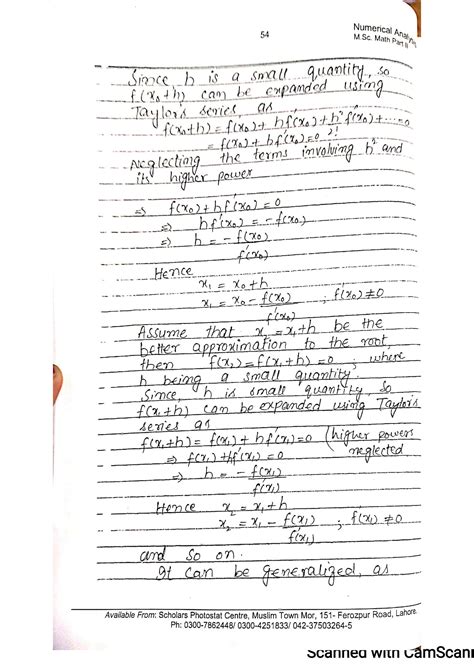 54
Numerical Analysis
M.Sc. Math Part II
Since h is a small quantity, so
f(x₀+h) can be expanded using
Taylor's series, as
f(x₀+h) = f(x₀) + hf'(x₀) + h²/2! f''(x₀) + ... = 0
= f(x₀) + hf'(x₀) = 0
Neglecting the terms involving h² and
its higher power
⇒ f(x₀) + hf'(x₀) = 0
⇒ hf'(x₀) = -f(x₀)
⇒ h = -f(x₀)/f'(x₀)
Hence
x₁ = x₀ + h
x₁ = x₀ - f(x₀)/f'(x₀) ; f'(x₀) ≠ 0
Assume that x₂ = x₁+h be the
better approximation to the root,
then f(x₂) = f(x₁+h) = 0 ; where
h being a small quantity.
Since, h is small quantity, so
f(x₁+h) can be expanded using Taylor's
series as
f(x₁+h) = f(x₁) + hf'(x₁) = 0 (higher powers neglected
⇒ f(x₁) + hf'(x₁) = 0
⇒ h = -f(x₁)/f'(x₁)
Hence x₂ = x₁ + h
x₂ = x₁ - f(x₁)/f'(x₁) ; f'(x₁) ≠ 0
and so on.
It can be generalized, as
Available From: Scholars Photostat Centre, Muslim Town Mor, 151- Ferozpur Road, Lahore.
Ph: 0300-7862448/ 0300-4251833/ 042-37503264-5
Scanned with CamScan